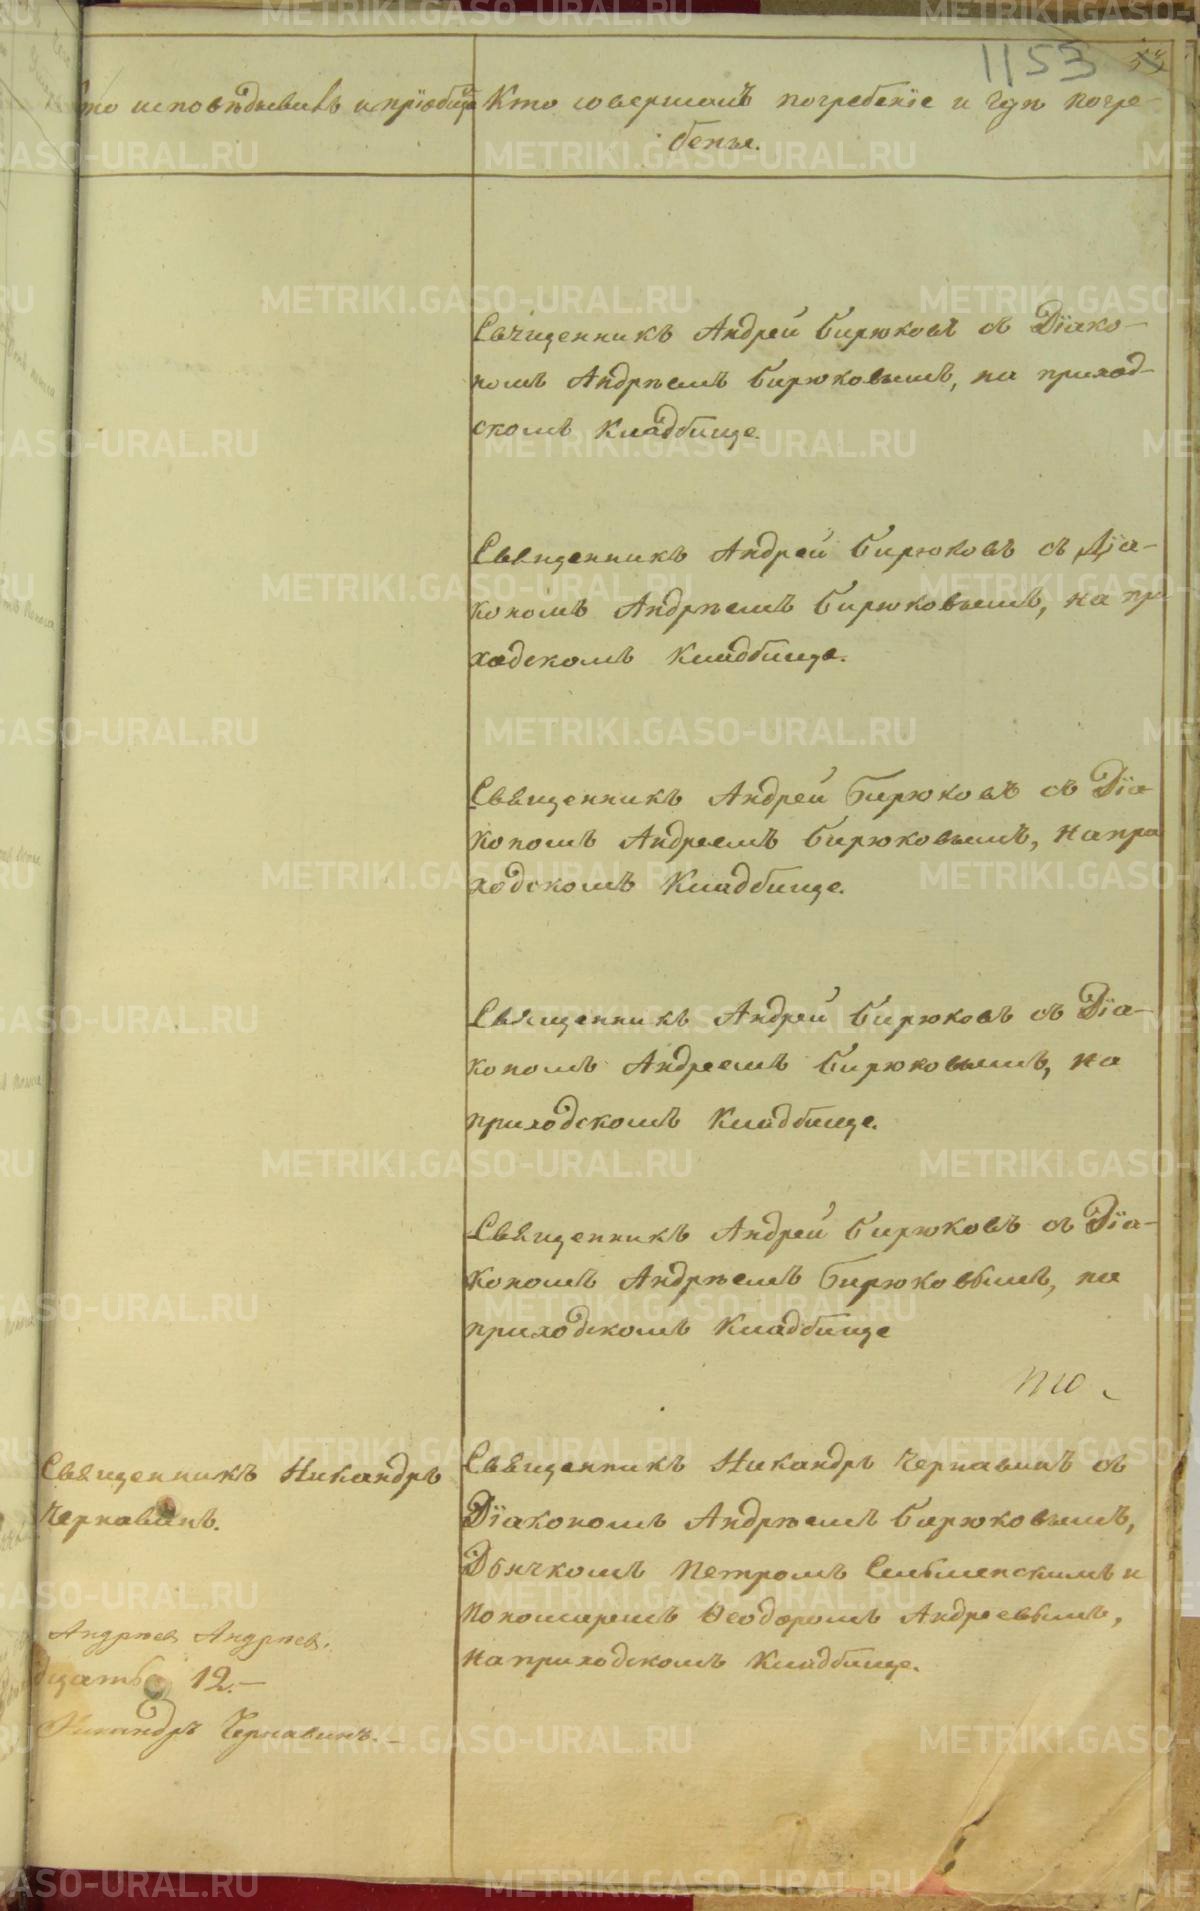 1153
то исповѣдывалъ и пріобщ
Кто совершалъ погребеніе и гдѣ погре-
бены.
Священникъ Андрей Бирюковъ съ Діако-
номъ Андрѣемъ Бирюковымъ, на приход-
скомъ Кладбище.
Священникъ Андрей Бирюковъ съ Діа-
кономъ Андрѣемъ Бирюковымъ, на при
ходскомъ Кладбище.
Священникъ Андрей Бирюковъ съ Діа
кономъ Андреемъ Бирюковымъ, на при
ходскомъ Кладбище.
Священникъ Андрей Бирюковъ съ Діа-
кономъ Андреемъ Бирюковымъ, на
приходскомъ Кладбище.
Священникъ Андрей Бирюковъ съ Діа-
кономъ Андрѣемъ Бирюковымъ, на
приходскомъ Кладбище
Священникъ Никандръ
Чернавинъ.
Священникъ Никандръ Чернавинъ съ
Діакономъ Андрѣемъ Бирюковымъ,
Дьячкомъ Петромъ и
Пономаремъ Ѳеодоромъ Андреевымъ,
на приходскомъ Кладбище.
Андрѣев Андрѣев.
дцать 12.-
Никандръ Чернавинъ.-
METRIKI.GASO-URAL.RU